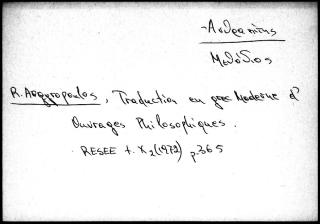 - Ανθρακίτης
Μεθόδιος
R. Argyropoulos, Traduction en grec Moderne d'
Ouvrages Philosophiques.
RESEE t. X₂ (1972) p. 365